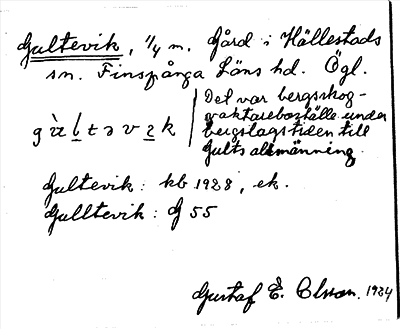 Gultevik, 1/4 m. Gård i Hällestads
sn. Finspånga Läns hd. Ögl.
Det var bergsskog-
vaktareboställe under
bergslagstiden till
Gults allmänning.
gùltəvɛk
Gultevik: kb 1928, ek.
Gulltevik: G 55
Gustaf E. Olsson. 1934